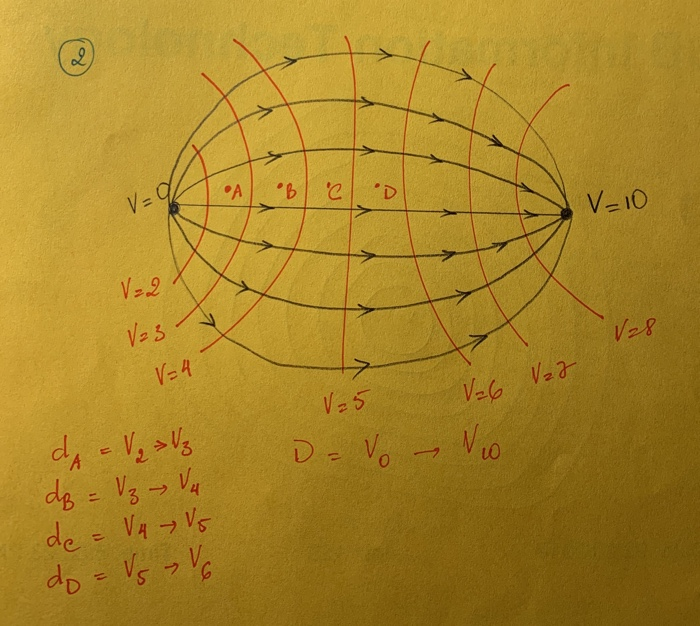 2
V=0
A
B
C
D
V=10
V=2
V=3
V=4
V=5
V=6
V=7
V=8
dA = V2 → V3
dB = V3 → V4
dC = V4 → V5
dD = V5 → V6
D = V0 → V10